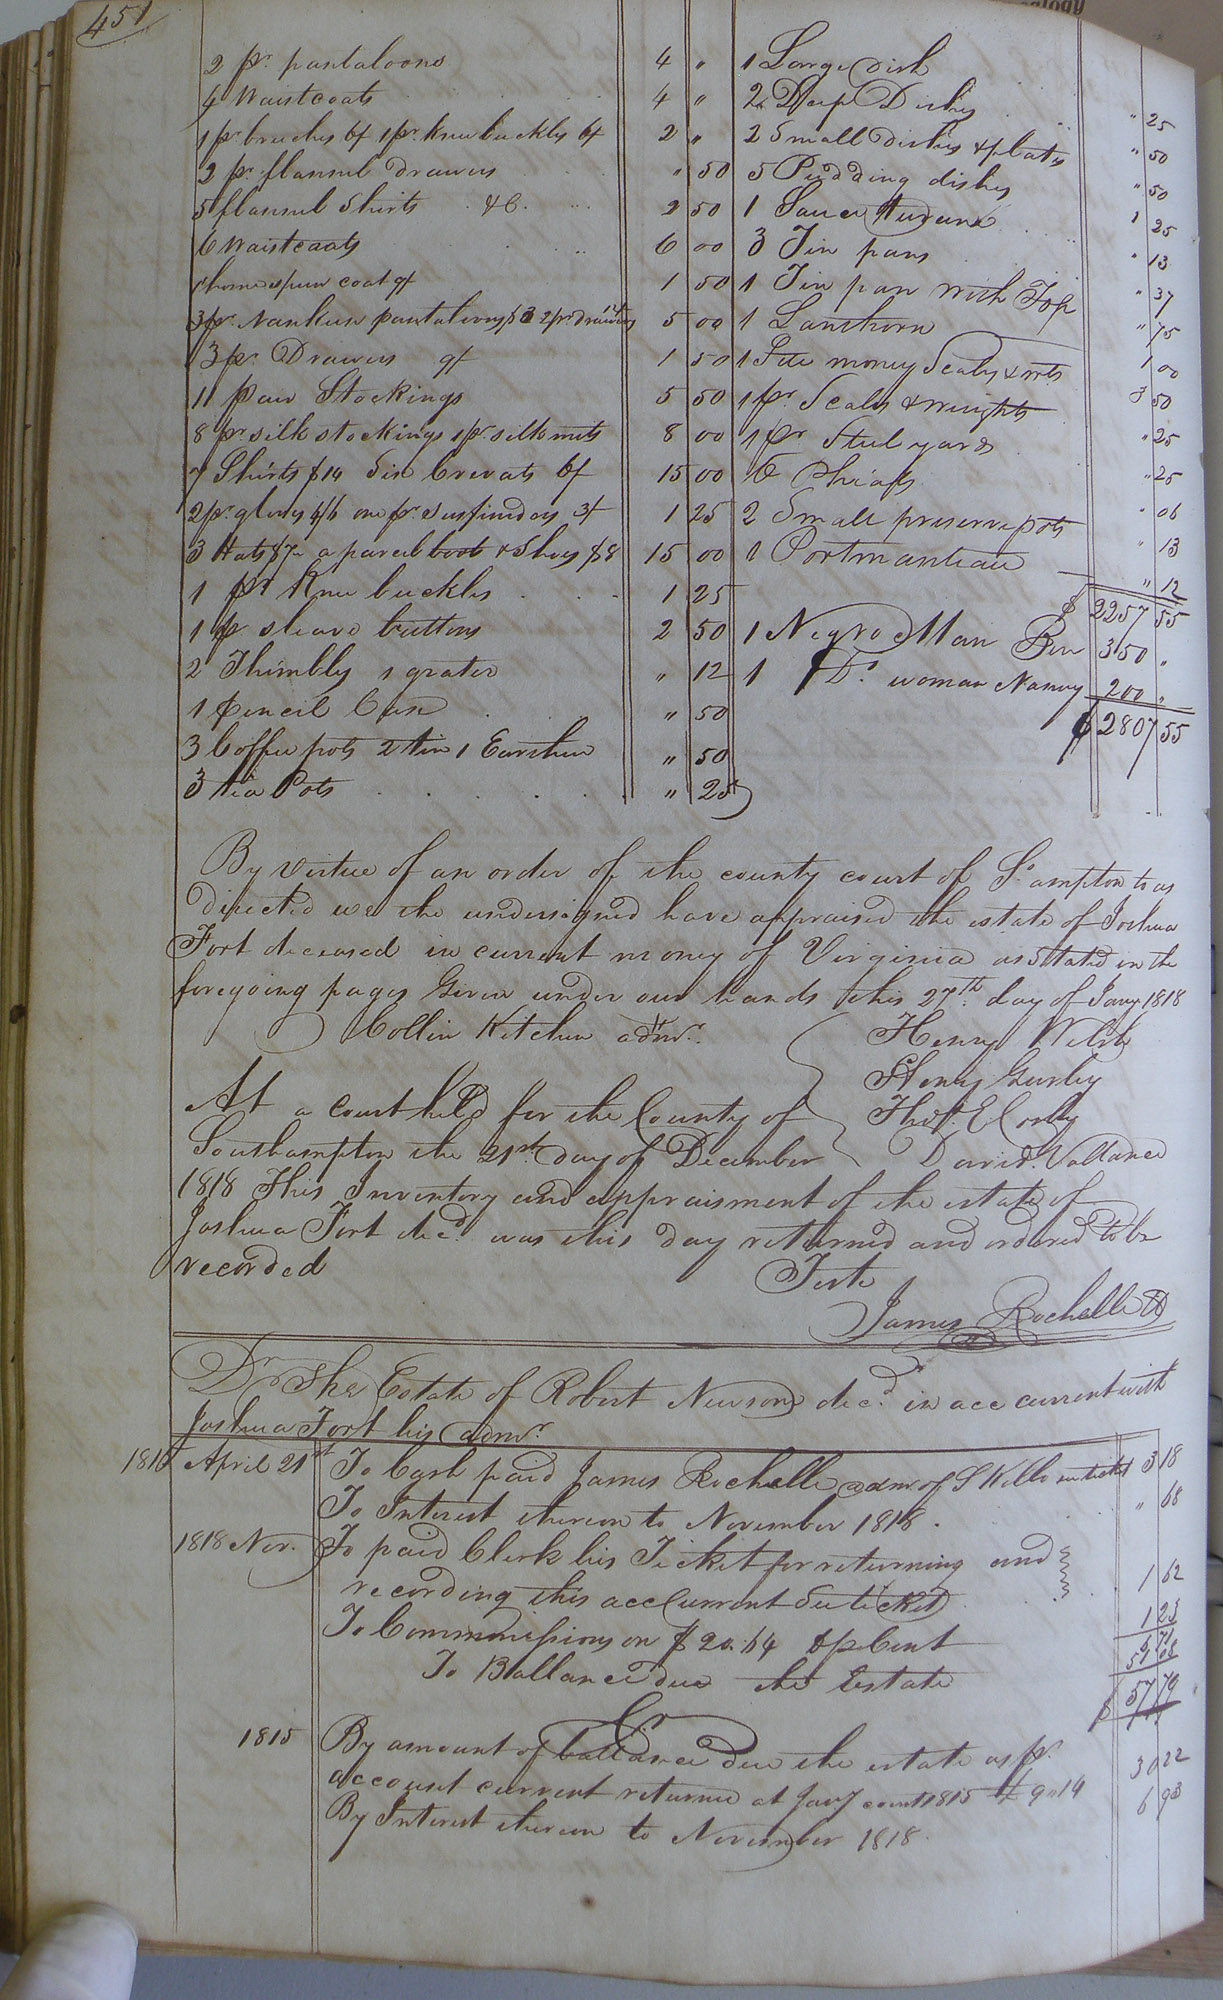 451
2 pr. pantaloons 4 "
4 Waistcoats 4 "
1 pr breeches 6/ 1 pr. knee buckles 6/ 2 "
2 pr. flannel drawers " 50
5 flannel Shirts &C. 2 50
6 Waistcoats 6 00
1 homespun coat 9/ 1 50
3 pr. Nankeen pantaloons $3 2 pr. drawers 5 00
3 pr. Drawers 9/ 1 50
11 pair Stockings 5 50
8 pr silk stockings 1 pr. silk mits 8 00
7 Shirts $14 Six Cravats 6/ 15 00
2 pr. gloves 4/6 one pr. suspenders 3/ 1 25
3 Hats $7 a parcel boots & Shoes $8 15 00
1 pr Knee buckles 1 25
1 pr sleave buttons 2 50
2 Thimbles 1 grater " 12
1 Pencil Case " 50
3 Coffee pots 2 tin 1 Earthen " 50
3 tea Pots " 25
1 Large dish " 25
2 Deep Dishes " 50
2 Small dishes & plates " 50
5 Pudding dishes 1 25
1 Sauce tureen " 13
3 Tin pans " 37
1 Tin pan with Top " 75
1 Lanthorn 1 00
1 Sett money Scales & wts 3 50
1 pr. Scales & weights " 25
1 pr Steelyards " 25
6 Phials " 06
2 Small preserve pots " 13
1 Portmanteau " 12
$ 2257 55
1 Negro Man Ben 350 "
1 Do. woman Nancy 200 "
$ 2807 55
By virtue of an order of the county court of So. ampton to us
directed we the undersigned have appraised the estate of Joshua
Fort deceased in current money of Virginia as Stated in the
foregoing pages Given under our hands this 27th. day of Jany 1818
Collin Kitchen admr. Henry Welsh
Henry Gurley
At a court held for the County of Thos. E Corby
Southampton the 21st. day of December David. Vallance
1818 This Inventory and appraisment of the estate of
Joshua Fort decd. was this day returned and ordered to be
recorded Teste
James Rochelle
Dr The Estate of Robert Newsom decd. in acc current with
Joshua Fort his admr.
1816 April 21st To Cash paid James Rochelle admr of S Kello 3 18
To Interest thereon to November 1818. " 68
1818 Nov. To paid Clerk his Ticket for returning and
recording this acc Current See ticket 1 62
To Commissions on $ 20.64 6 pr Cent 1 23
6 71
To Ballance due the Estate 51 08
$ 57 79
Cr
1815 By amount of ballance due the estate as pr.
account current returned at Jany court 1815 £ 9"14 30 22
By Interest thereon to November 1818. 6 93